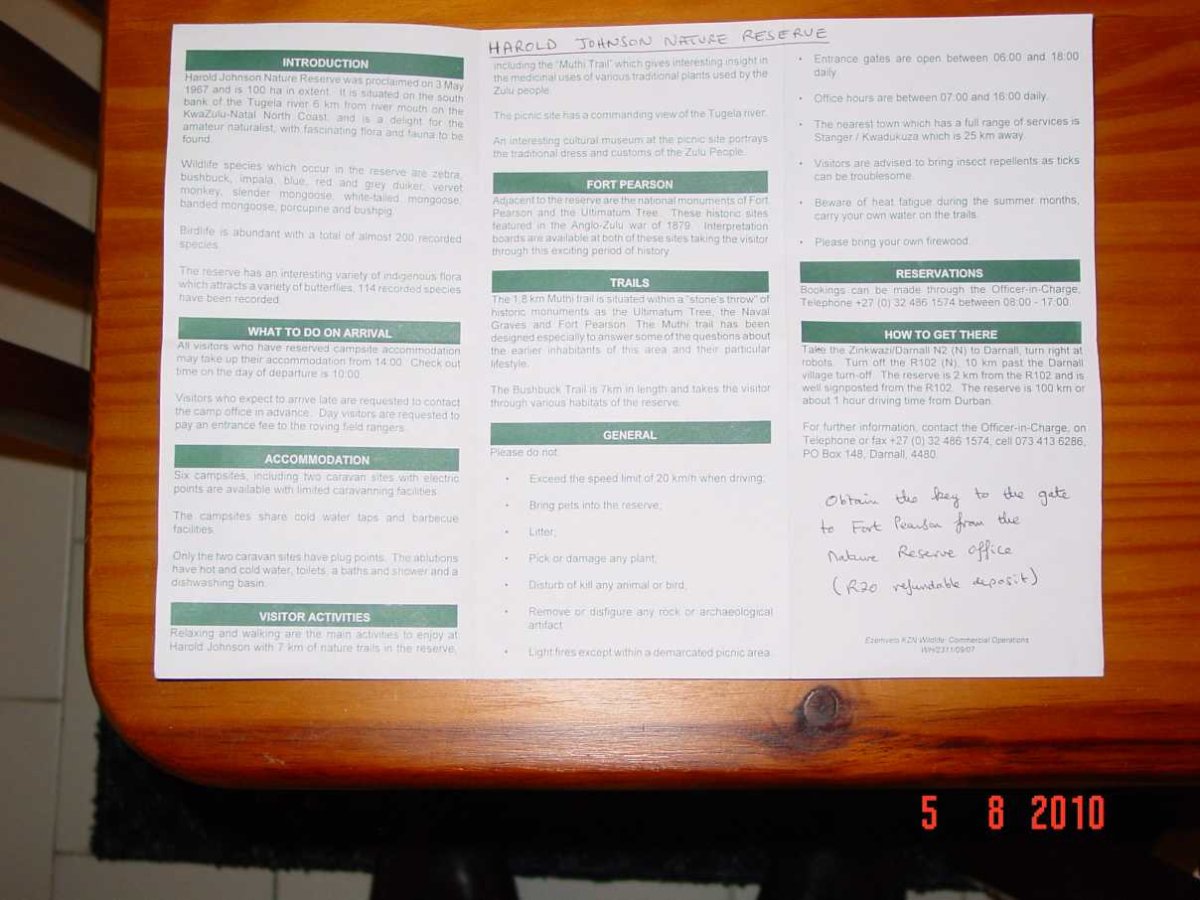 HAROLD JOHNSON NATURE RESERVE
INTRODUCTION
Harold Johnson Nature Reserve was proclaimed on 3 May
1967 and is 100 ha in extent. It is situated on the south
bank of the Tugela river 6 km from river mouth on the
KwaZulu-Natal North Coast, and is a delight for the
amateur naturalist, with fascinating flora and fauna to be
found.
Wildlife species which occur in the reserve are zebra,
bushbuck, impala, blue, red and grey duiker, vervet
monkey, slender mongoose, white-tailed mongoose,
banded mongoose, porcupine and bushpig.
Birdlife is abundant with a total of almost 200 recorded
species.
The reserve has an interesting variety of indigenous flora
which attracts a variety of butterflies, 114 recorded species
have been recorded.
WHAT TO DO ON ARRIVAL
All visitors who have reserved campsite accommodation
may take up their accommodation from 14:00. Check out
time on the day of departure is 10:00.
Visitors who expect to arrive late are requested to contact
the camp office in advance. Day visitors are requested to
pay an entrance fee to the roving field rangers.
ACCOMMODATION
Six campsites, including two caravan sites with electric
points are available with limited caravanning facilities
The campsites share cold water taps and barbecue
facilities.
Only the two caravan sites have plug points. The ablutions
have hot and cold water, toilets, a baths and shower and a
dishwashing basin.
VISITOR ACTIVITIES
Relaxing and walking are the main activities to enjoy at
Harold Johnson with 7 km of nature trails in the reserve,
including the "Muthi Trail" which gives interesting insight in
the medicinal uses of various traditional plants used by the
Zulu people.
The picnic site has a commanding view of the Tugela river.
An interesting cultural museum at the picnic site portrays
the traditional dress and customs of the Zulu People.
FORT PEARSON
Adjacent to the reserve are the national monuments of Fort
Pearson and the Ultimatum Tree. These historic sites
featured in the Anglo-Zulu war of 1879. Interpretation
boards are available at both of these sites taking the visitor
through this exciting period of history.
TRAILS
The 1.8 km Muthi trail is situated within a "stone's throw" of
historic monuments as the Ultimatum Tree, the Naval
Graves and Fort Pearson. The Muthi trail has been
designed especially to answer some of the questions about
the earlier inhabitants of this area and their particular
lifestyle.
The Bushbuck Trail is 7km in length and takes the visitor
through various habitats of the reserve.
GENERAL
Please do not:
• Exceed the speed limit of 20 km/h when driving;
• Bring pets into the reserve;
• Litter;
• Pick or damage any plant;
• Disturb of kill any animal or bird;
• Remove or disfigure any rock or archaeological
artifact
• Light fires except within a demarcated picnic area
• Entrance gates are open between 06:00 and 18:00
daily.
• Office hours are between 07:00 and 16:00 daily.
• The nearest town which has a full range of services is
Stanger / Kwadukuza which is 25 km away.
• Visitors are advised to bring insect repellents as ticks
can be troublesome.
• Beware of heat fatigue during the summer months,
carry your own water on the trails.
• Please bring your own firewood.
RESERVATIONS
Bookings can be made through the Officer-in-Charge,
Telephone +27 (0) 32 486 1574 between 08:00 - 17:00.
HOW TO GET THERE
Take the Zinkwazi/Darnall N2 (N) to Darnall, turn right at
robots. Turn off the R102 (N), 10 km past the Darnall
village turn-off. The reserve is 2 km from the R102 and is
well signposted from the R102. The reserve is 100 km or
about 1 hour driving time from Durban.
For further information, contact the Officer-in-Charge, on
Telephone or fax +27 (0) 32 486 1574, cell 073 413 6286,
PO Box 148, Darnall, 4480.
Obtain the key to the gate
to Fort Pearson from the
Nature Reserve Office
(R20 refundable deposit)
Ezemvelo KZN Wildlife: Commercial Operations
WH/2311/09/07
5 8 2010